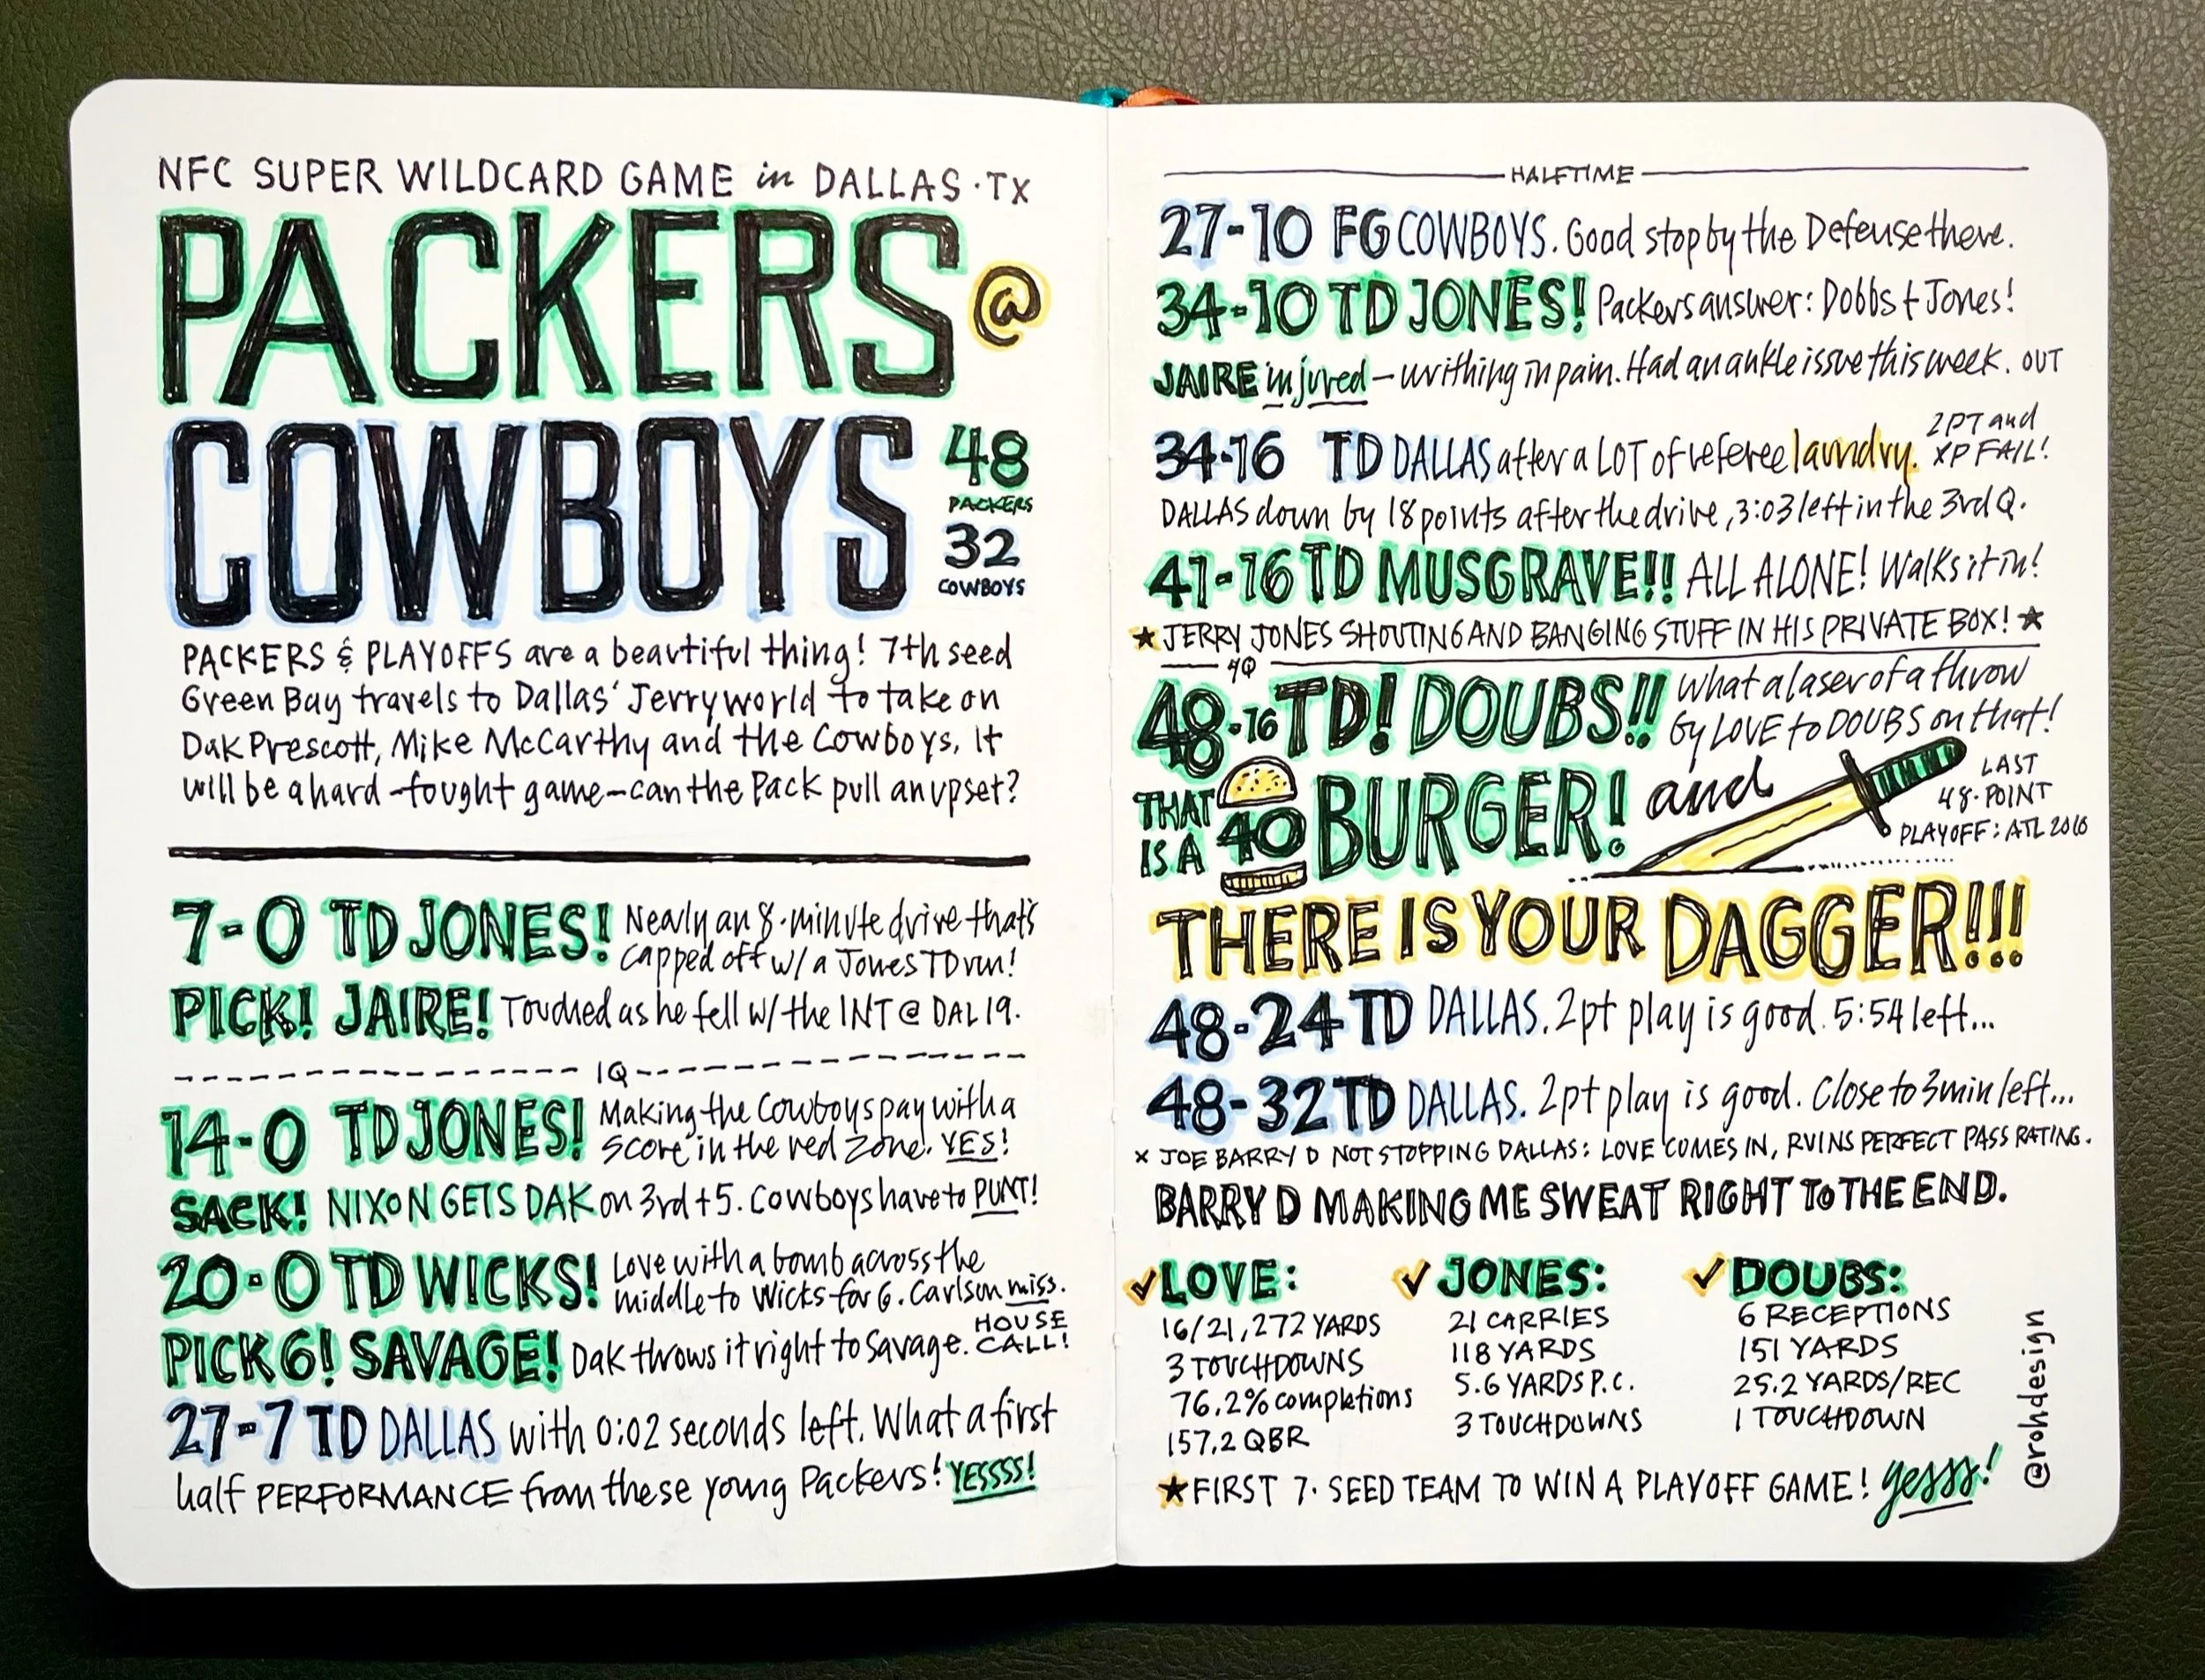 NFC SUPER WILDCARD GAME in DALLAS · TX
PACKERS @
COWBOYS
48
PACKERS
32
COWBOYS
PACKERS & PLAYOFFS are a beautiful thing! 7th seed
Green Bay travels to Dallas' Jerryworld to take on
Dak Prescott, Mike McCarthy and the Cowboys. It
will be a hard-fought game—can the Pack pull an upset?
7-0 TD JONES! Nearly an 8-minute drive that's
capped off w/ a Jones TD run!
PICK! JAIRE! Touched as he fell w/ the INT @ DAL 19.
1Q
14-0 TD JONES! Making the Cowboys pay with a
score in the red zone. YES!
SACK! NIXON GETS DAK on 3rd + 5. Cowboys have to PUNT!
20-0 TD WICKS! Love with a bomb across the
middle to Wicks for 6. Carlson miss.
PICK 6! SAVAGE! Dak throws it right to Savage. HOUSE
CALL!
27-7 TD DALLAS with 0:02 seconds left. What a first
half PERFORMANCE from these young Packers! YESSSS!
HALFTIME
27-10 FG COWBOYS. Good stop by the Defense there.
34-10 TD JONES! Packers answer: Dobbs + Jones!
JAIRE injured — writhing in pain. Had an ankle issue this week. OUT
34-16 TD DALLAS after a LOT of referee laundry. 2PT and
XP FAIL!
DALLAS down by 18 points after the drive, 3:03 left in the 3rd Q.
41-16 TD MUSGRAVE!! ALL ALONE! Walks it in!
★ JERRY JONES SHOUTING AND BANGING STUFF IN HIS PRIVATE BOX! ★
4Q
48-16 TD! DOUBS!! What a laser of a throw
by LOVE to DOUBS on that!
THAT
IS A 40 BURGER! and
LAST
48-POINT
PLAYOFF: ATL 2010
THERE IS YOUR DAGGER!!!
48-24 TD DALLAS. 2pt play is good. 5:54 left...
48-32 TD DALLAS. 2pt play is good. Close to 3 min left...
x JOE BARRY D NOT STOPPING DALLAS: LOVE COMES IN, RUINS PERFECT PASS RATING.
BARRY D MAKING ME SWEAT RIGHT TO THE END.
✓ LOVE:
16/21, 272 YARDS
3 TOUCHDOWNS
76.2% completions
157.2 QBR
✓ JONES:
21 CARRIES
118 YARDS
5.6 YARDS P.C.
3 TOUCHDOWNS
✓ DOUBS:
6 RECEPTIONS
151 YARDS
25.2 YARDS/REC
1 TOUCHDOWN
★ FIRST 7-SEED TEAM TO WIN A PLAYOFF GAME! yesss!
@rohdesign